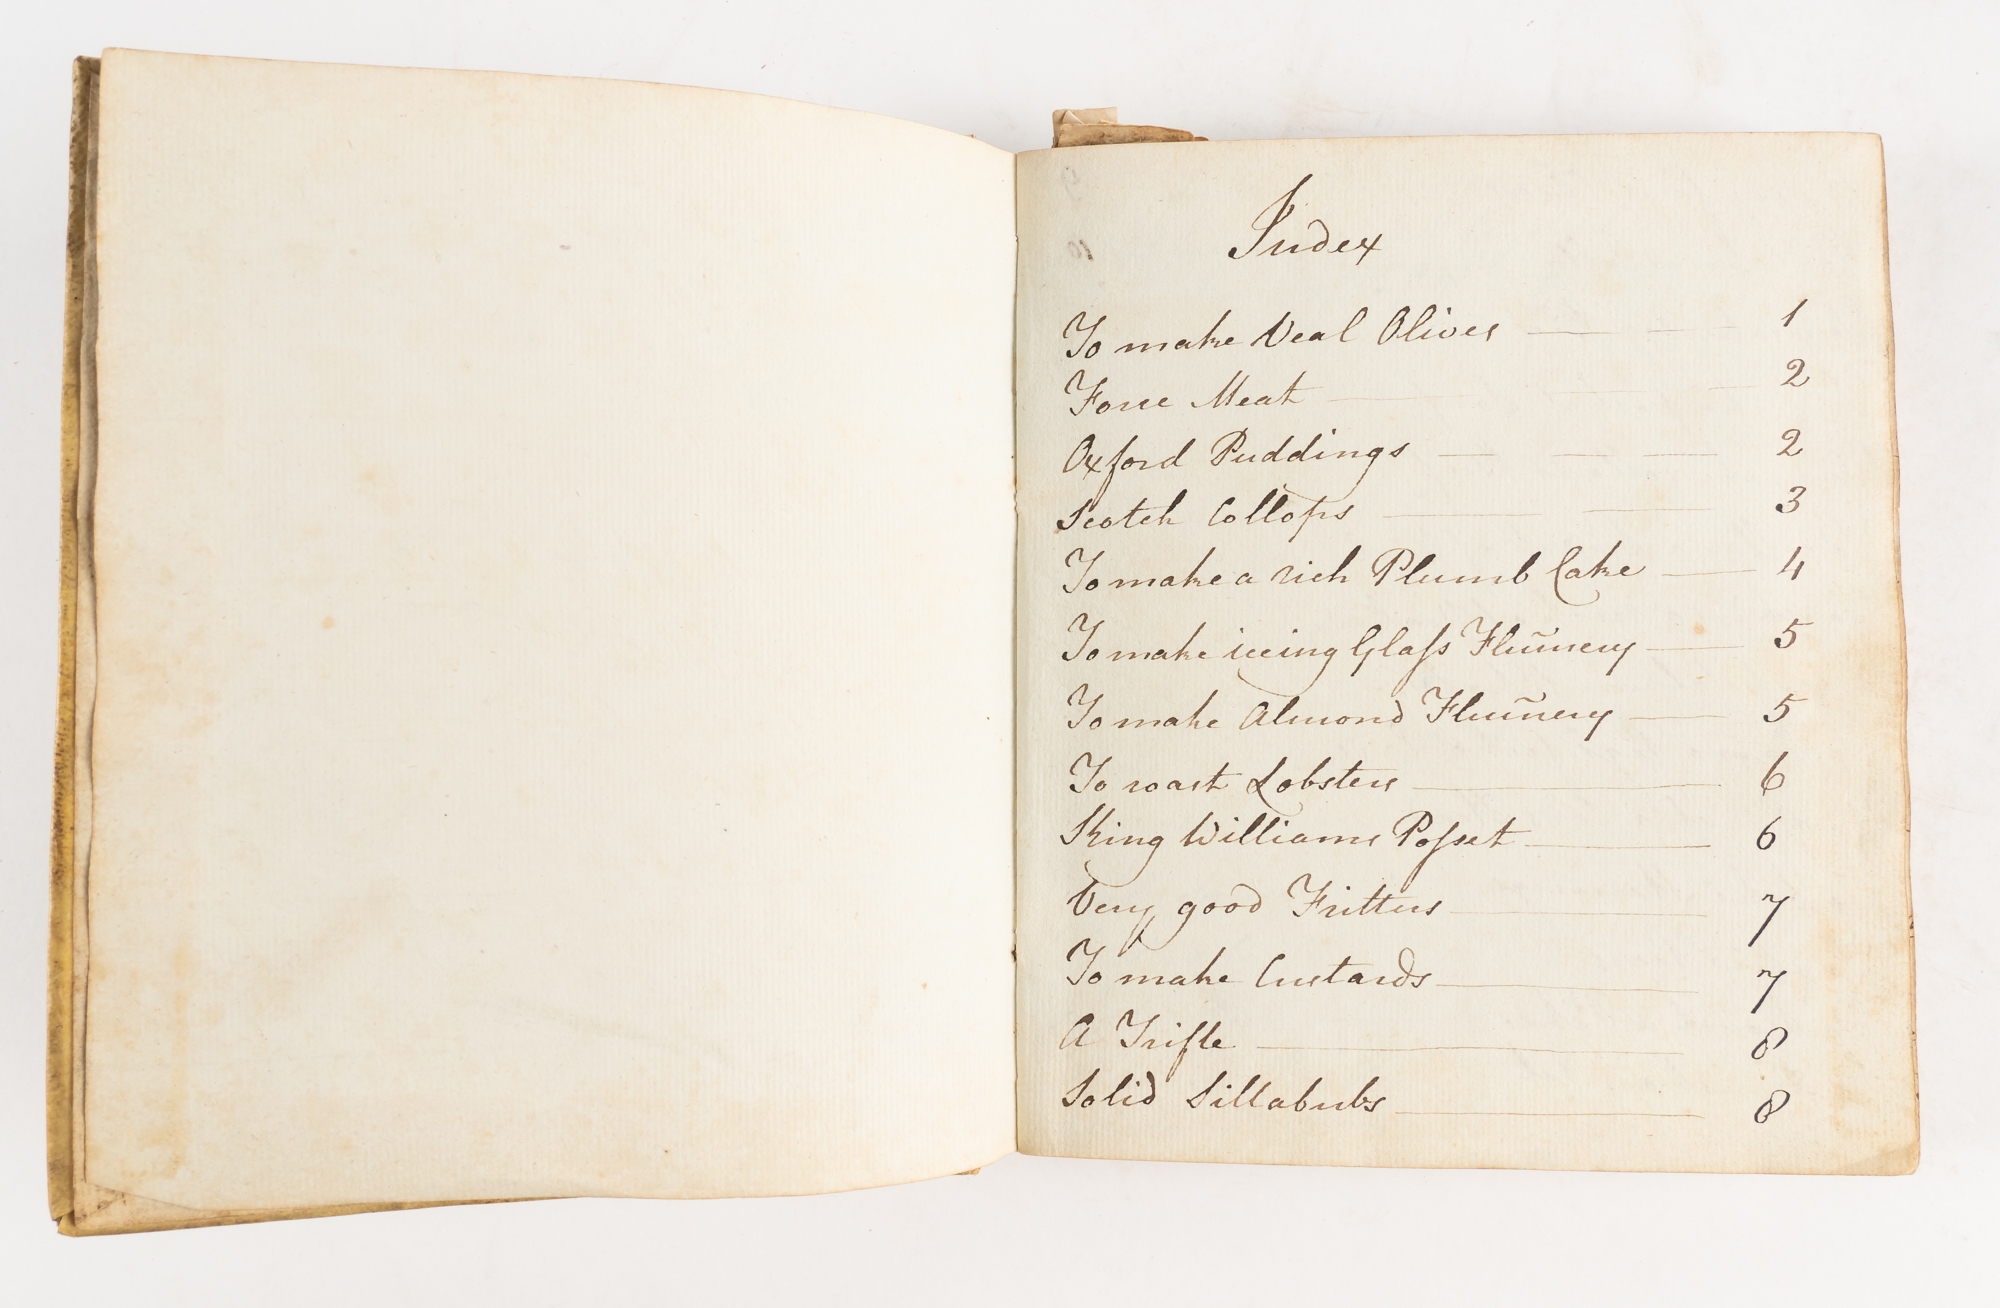 Index
To make Veal Olives 1
Force Meat 2
Oxford Puddings 2
Scotch Collops 3
To make a rich Plumb Cake 4
To make iceing Glaſs Flum̃ery 5
To make Almond Flum̃ery 5
To roast Lobsters 6
King Williams Poſset 6
Very good Fritters 7
To make Custards 7
A Trifle 8
Solid Sillabubs 8